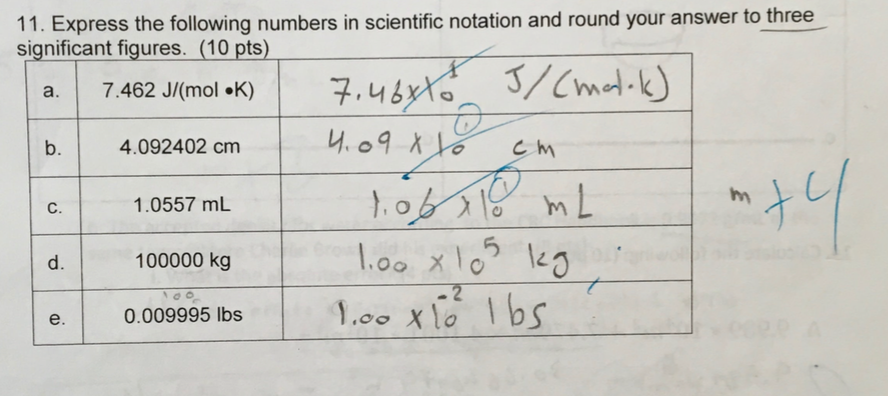 11. Express the following numbers in scientific notation and round your answer to three
significant figures. (10 pts)
a. 7.462 J/(mol •K) 7.46x10¹ J/(mol.k)
b. 4.092402 cm 4.09 x 10¹ cm
c. 1.0557 mL 1.06 x10¹ mL
+4
d. 100000 kg 1.00 x 10⁵ kg
100
e. 0.009995 lbs 1.00 x10⁻² lbs